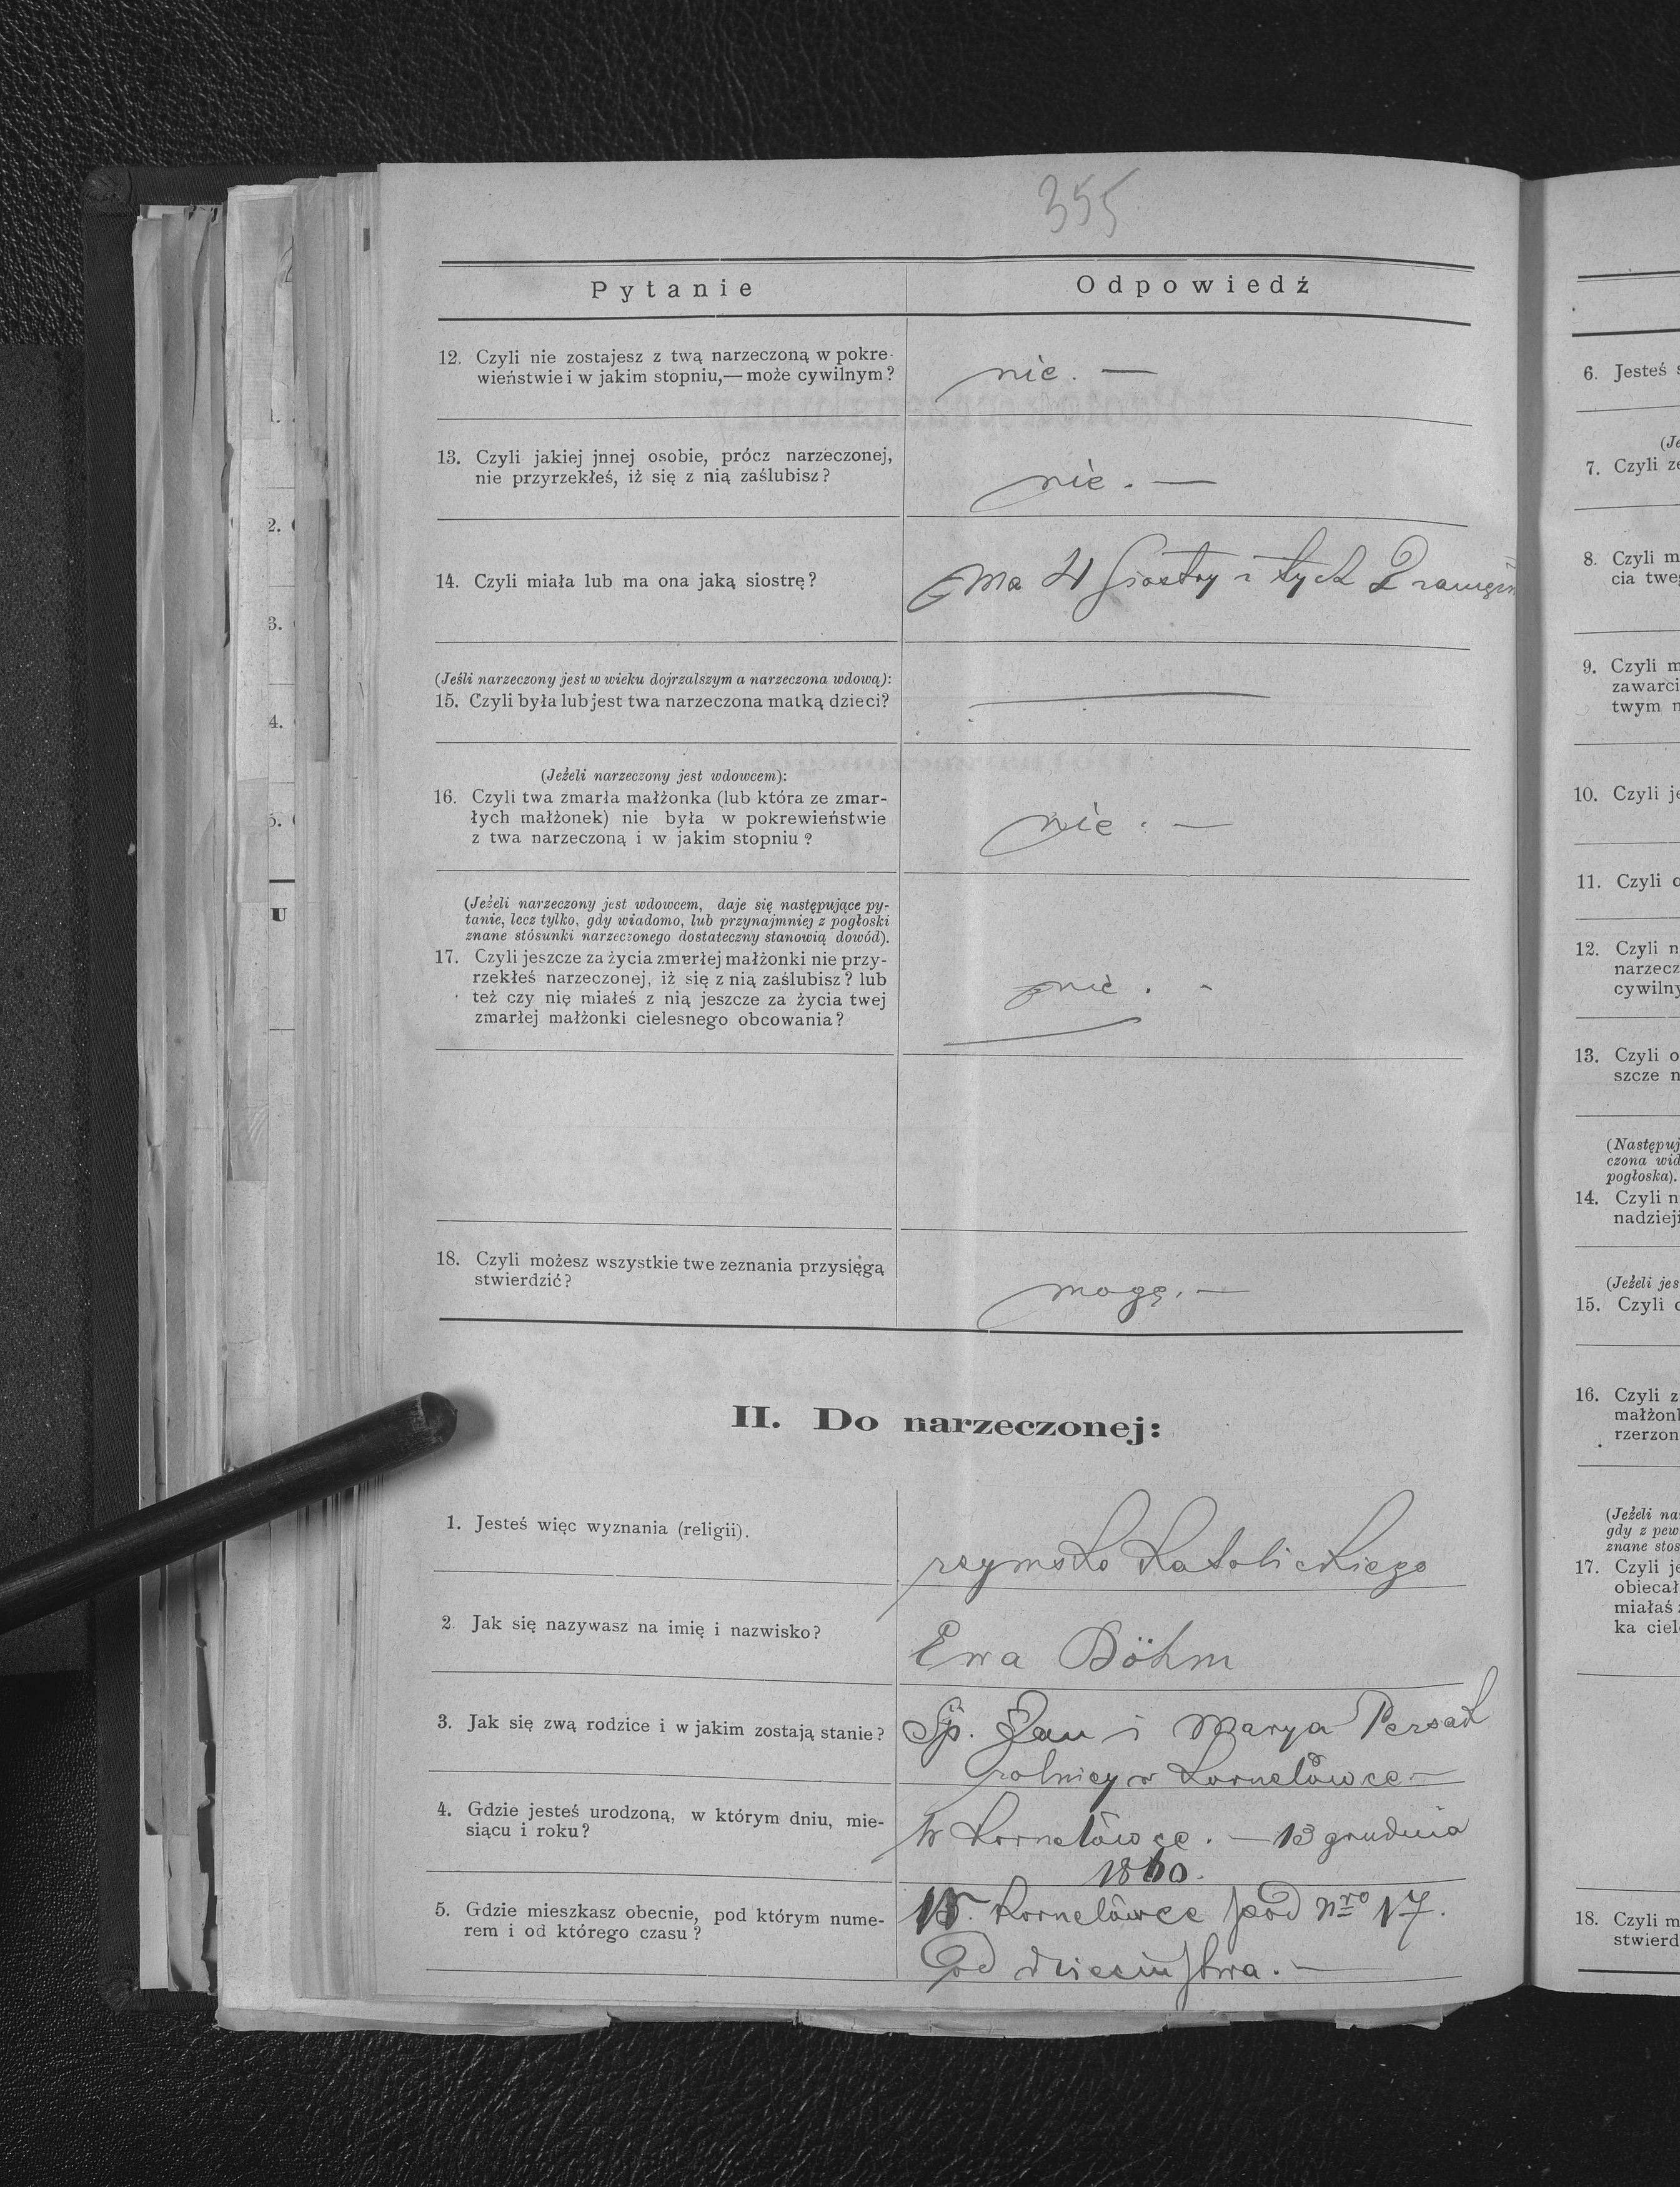 355
Pytanie
Odpowiedź
12. Czyli nie zostajesz z twą narzeczoną w pokre-
wieństwie i w jakim stopniu,— może cywilnym?
nie. —
13. Czyli jakiej jnnej osobie, prócz narzeczonej,
nie przyrzekłeś, iż się z nią zaślubisz?
nie. —
14. Czyli miała lub ma ona jaką siostrę?
Ma 4 siostry i tych 2
(Jeśli narzeczony jest w wieku dojrzalszym a narzeczona wdową):
15. Czyli była lub jest twa narzeczona matką dzieci?
—
(Jeżeli narzeczony jest wdowcem):
16. Czyli twa zmarła małżonka (lub która ze zmar-
łych małżonek) nie była w pokrewieństwie
z twa narzeczoną i w jakim stopniu?
nie. —
(Jeżeli narzeczony jest wdowcem, daje się następujące py-
tanie, lecz tylko, gdy wiadomo, lub przynajmniej z pogłoski
znane stósunki narzeczonego dostateczny stanowią dowód).
17. Czyli jeszcze za życia zmerłej małżonki nie przy-
rzekłeś narzeczonej, iż się z nią zaślubisz? lub
też czy nię miałeś z nią jeszcze za życia twej
zmarłej małżonki cielesnego obcowania?
nie. -
18. Czyli możesz wszystkie twe zeznania przysięgą
stwierdzić?
mogę. —
II. Do narzeczonej:
1. Jesteś więc wyznania (religii).
rzymsko katolickiego
2. Jak się nazywasz na imię i nazwisko?
Ewa Böhm
3. Jak się zwą rodzice i w jakim zostają stanie?
Śp. Jan i Marya Persak
rolnicy w Kornelówce —
4. Gdzie jesteś urodzoną, w którym dniu, mie-
siącu i roku?
W Kornelówce. — 13 grudnia
1860.
5. Gdzie mieszkasz obecnie, pod którym nume-
rem i od którego czasu?
W Kornelówce pod Nro 17.
Od dzieciństwa. —
6. Jesteś
7. Czyli
8. Czyli
cia
9. Czyli
twym
10. Czyli
11. Czyli
12. Czyli
13. Czyli
szcze
czona
pogłoska).
14. Czyli
(Jeżeli
15. Czyli
16. Czyli
(Jeżeli
gdy z
znane
17. Czyli
miałaś
ka
18. Czyli
2.
3.
4.
U